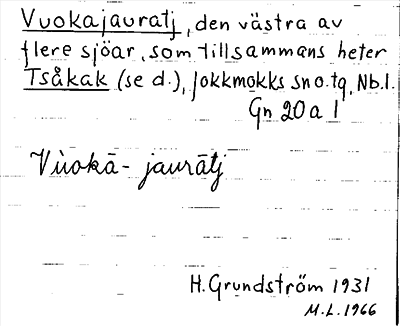 Vuokajauratj, den västra av
flere sjöar, som tillsammans heter
Tsåkak (se d.), Jokkmokks sno.tg, Nb.l.
Gn 20 a 1
Vùokā-jaurātj
H. Grundström 1931
M.L. 1966